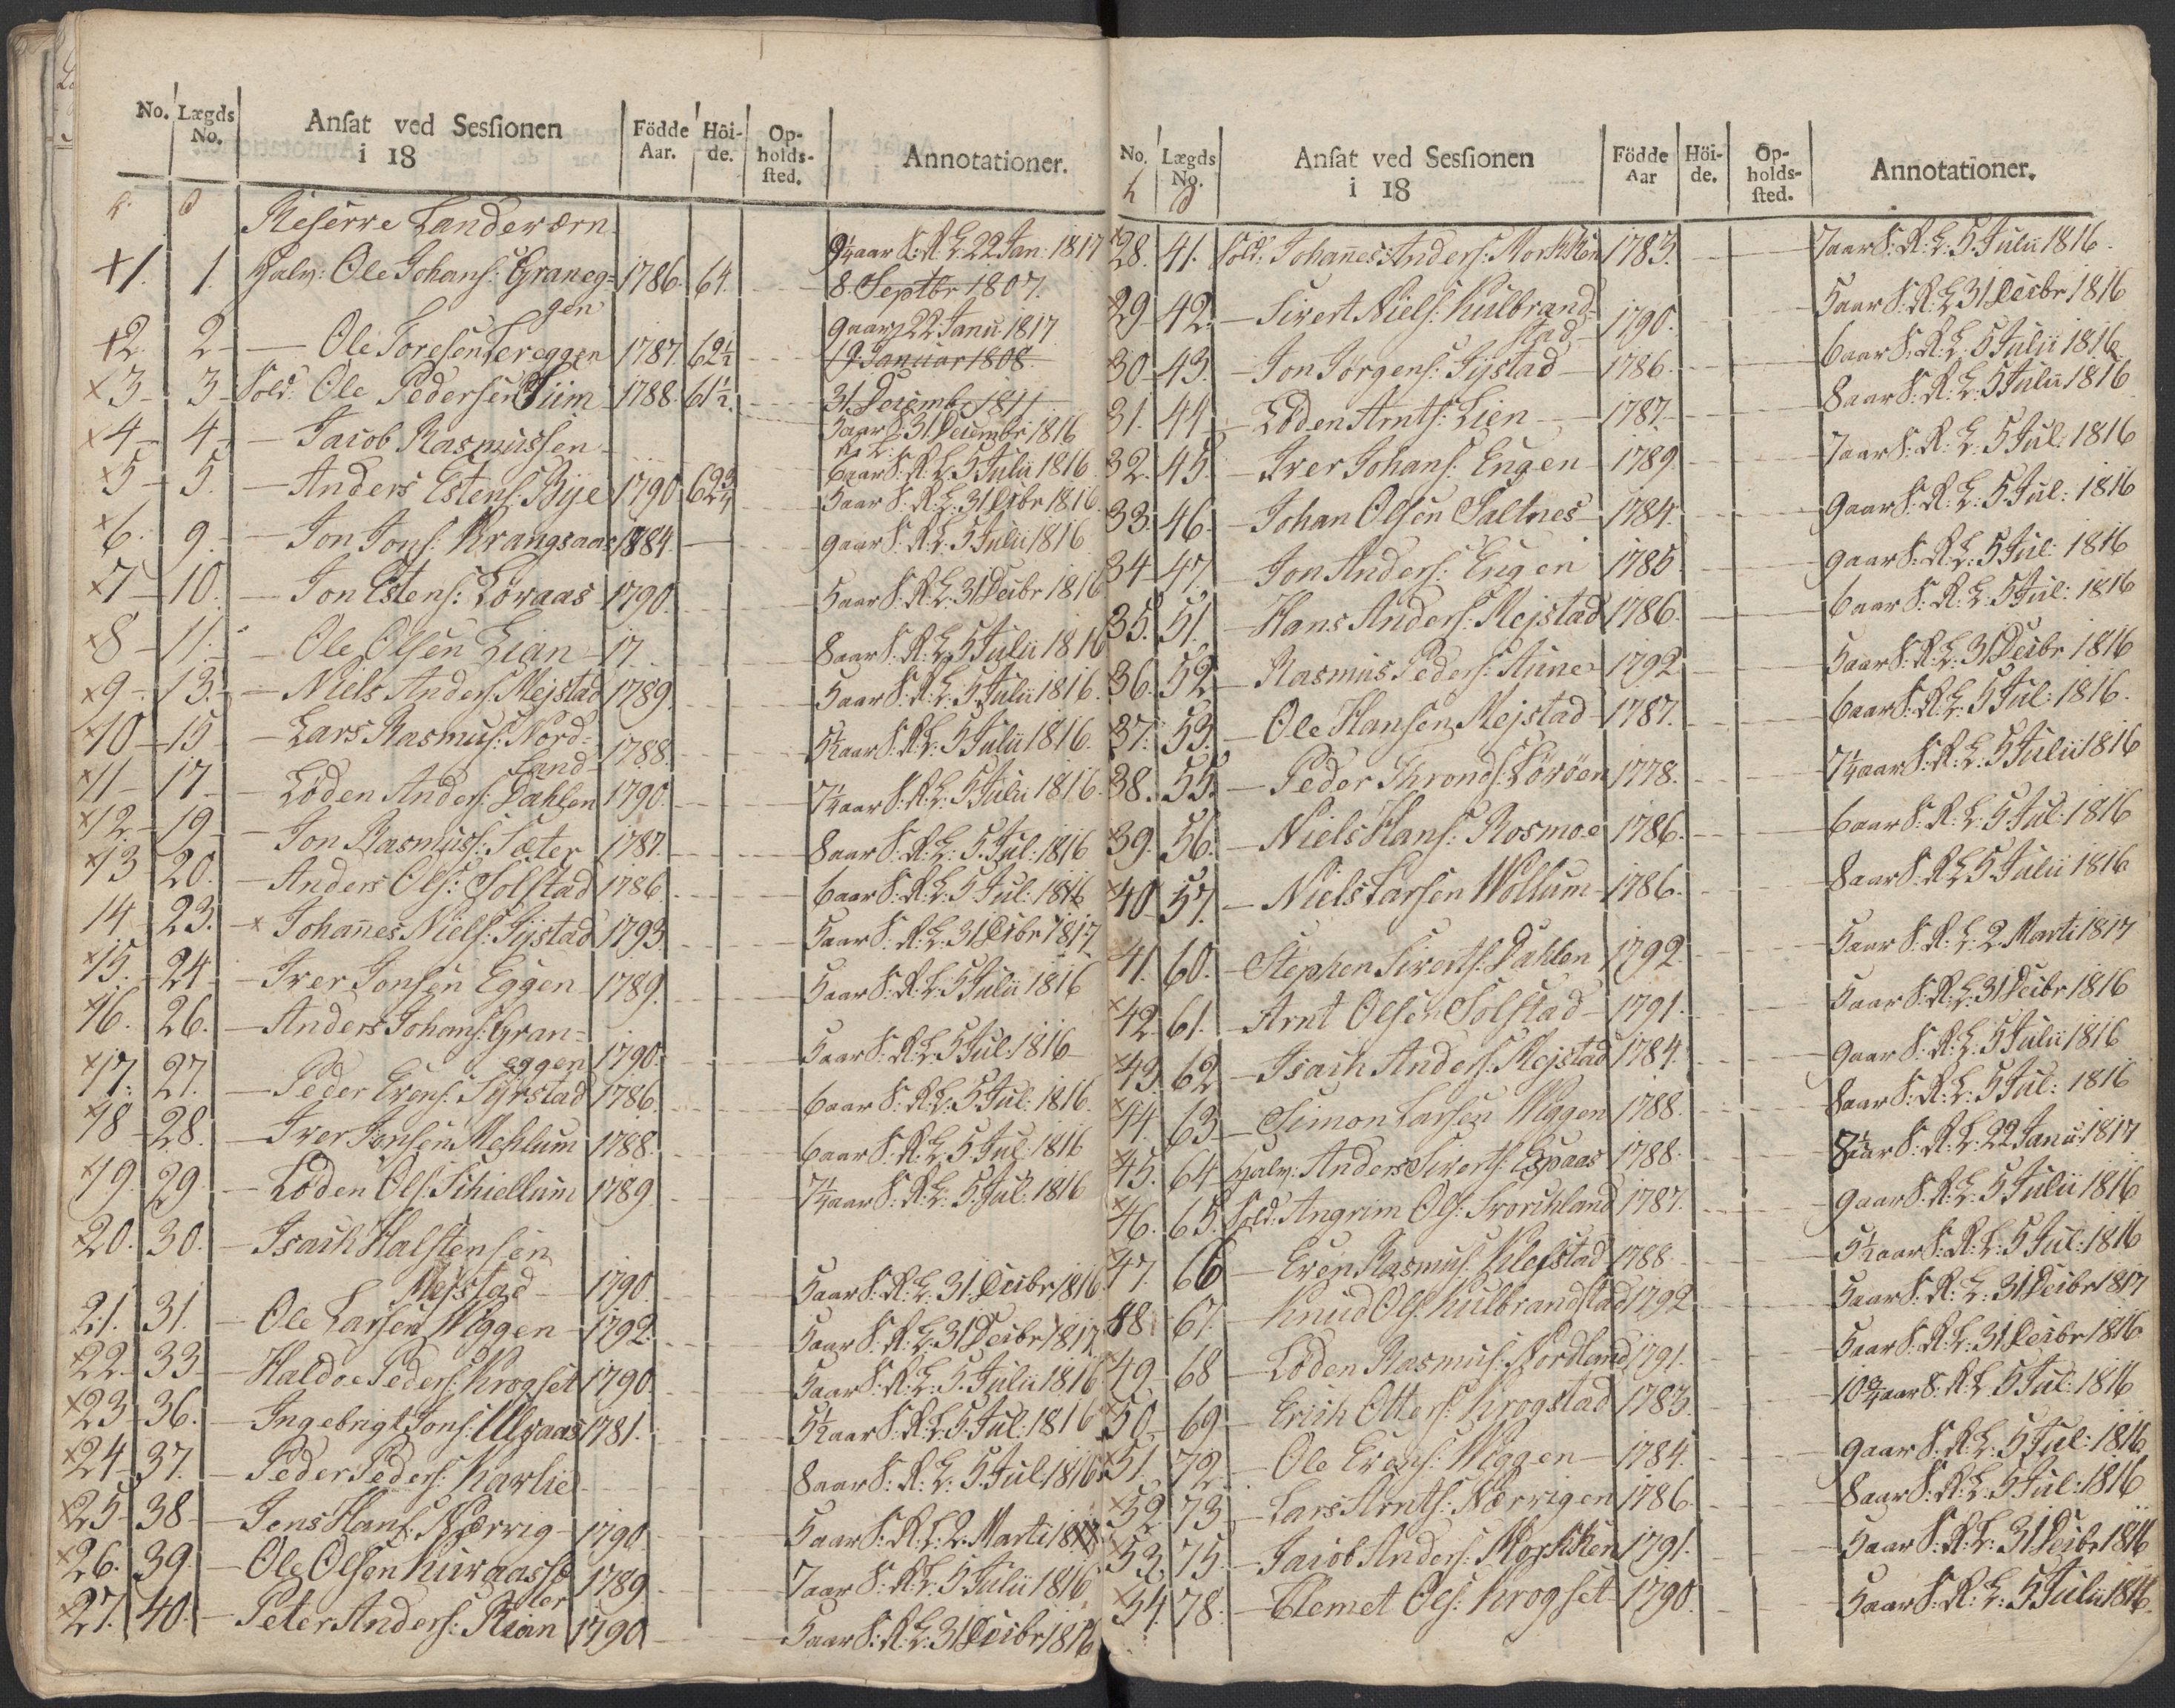 No. Lægds No. Ansat ved Sessionen i 18 Födde Aar. Höi-de. Op-holds-sted. Annotationer.
Reserve Landeværn
+1. 1. Halv: Ole Johans: Graneg= 1786. 64. 9¼ aar S: R: L: 22 Jan: 1817
gen 8. Septbr 1807.
+2. 2 — Ole Toresen Fereggen 1787. 62½ 9 aar 22 Janu: 1817
19 Januar 1808.
×3 3 Sold: Ole Pedersen Siim 1788. 61½. 31 Decembr 1811
×4 4 — Jacob Rasmussen 5 aar S: 31 Decembr 1816
R: L:
6 aar S: R: L: 5 Julii 1816.
×5 5. — Anders Estens: Bye 1790 62¾ 5 aar S: R: L: 31 Decbr 1816
×6. 9. — Jon Jons: Krangsaas 1784. 9 aar S: R: L: 5 Julii 1816
×7 10. — Jon Estens: Løvaas 1790. 5 aar S: R: L: 31 Decbr 1816
×8 11. — Ole Olsen Lian 17 8 aar S: R: L: 5 Julii 1816
×9 13. — Niels Anders: Mejstad 1789. 5 aar S: R: L: 5 Julii 1816.
×10 15 — Lars Rasmus: Nord=
land 1788. 5½ aar S: R: L: 5 Julii 1816.
×11 17 — Loden Anders: Dahlen 1790. 7¼ aar S: R: L: 5 Julii 1816.
×12. 19 — Jon Rasmuss: Sæter 1787. 8 aar S: R: L: 5. Jul: 1816
×13 20. — Anders Ols: Solstad 1786. 6 aar S: R: L: 5 Jul: 1816
14 23. × Johannes Niels: Systad 1793. 5 aar S: R: L: 31 Decbr 1817
×15. 24 — Iver Jonsen Eggen 1789. 5 aar S: R: L: 5 Julii 1816
×16. 26. — Anders Johans: Gran=
eggen 1790. 5 aar S: R: L: 5 Jul: 1816
×17. 27. — Peder Evens: Syrstad 1786. 6 aar S: R: L: 5 Jul: 1816.
×18 28. — Iver Jonsen Mehlum 1788. 6 aar S: R: L: 5 Jul: 1816
×19. 29. — Loden Ols: Schiellum 1789 7¼ aar S: R: L: 5. Jul: 1816
×20. 30. — Isach Halstensen
Mejstad 1790. 5 aar S: R: L: 31 Decbr 1816
21. 31. — Ole Larsen Wiggen 1792. 5 aar S: R: L: 31 Decbr 1817
×22 33 — Haldoe Peders: Krogset 1790. 5 aar S: R: L: 5. Julii 1816
×23 36. — Ingebrigt Jons: Ulsaas 1781. 5½ aar S: R: L: 5. Jul: 1816
×24 37. — Peder Peders: Karlie 8 aar S: R: L: 5 Jul: 1816
×25 38 — Jens Hans: Nærvig 1790. 5 aar S: R: L: 2. Marti 1817
×26. 39. — Ole Olsen Kuraasse
ter 1789 7 aar S: R: L: 5 Julii 1816
×27. 40. — Peter Anders: Rian 1790 5 aar S: R: L: 31 Decbr 1816
No. Lægds No. Ansat ved Sessionen i 18 Födde Aar Höi-de. Op-holds-sted. Annotationer.
×28. 41. Sold: Johannes Anders: Korskken 1783. 7 aar S: R: L: 5 Julii 1816.
×29 42. — Sivert Niels: Kulbrand=
stad 1790. 5 aar S: R: L: 31 Decbr 1816
×30 43. — Jon Jørgens: Systad 1786. 6 aar S: R: L: 5 Julii 1816.
31. 44 — Loden Arnts: Lien 1787. 8 aar S: R: L: 5 Julii 1816
×32. 45. — Iver Johans: Engen 1789. 7 aar S: R: L: 5 Jul: 1816
33. 46. — Johan Olsen Saltnes 1784. 9 aar S: R: L: 5 Jul: 1816
34 47. — Jon Anders: Engen 1785 9 aar S: R: L: 5 Jul: 1816
35. 51. — Hans Anders: Mejstad 1786. 6 aar S: R: L: 5 Jul: 1816
×36. 52 — Rasmus Peders: Aune 1792 5 aar S: R: L: 31 Decbr 1816
×37. 53. — Ole Hansen Mejstad 1787. 6 aar S: R: L: 5 Jul: 1816.
×38. 55. — Peder Thronds: Sørøen 1778. 7¼ aar S: R: L: 5 Julii 1816
×39. 56. — Niels Hans: Rosmoe 1786. 6 aar S: R: L: 5 Jul: 1816
×40 57. — Niels Larsen Wollum 1786. 8 aar S: R: L: 5 Julii 1816
41. 60. — Stephen Siverts: Dahlen 1792. 5 aar S: R: L: 2. Marti 1817
×42 61. — Arnt Olsen Solstad 1791. 5 aar S: R: L: 31 Decbr 1816
×43 62 — Isach Anders: Mejstad 1784. 9 aar S: R: L: 5 Julii 1816
×44 63 — Simon Larsen Wiggen 1788. 8 aar S: R: L: 5 Jul: 1816
×45. 64 Halv: Anders Siverts: Espaas 1788. 8½ aar S: R: L: 22 Janu: 1817
×46. 65. Sold: Angrim Ols: Svorchland 1787. 9 aar S: R: L: 5 Julii 1816
×47. 66 — Even Rasmus: Klefstad 1788. 5½ aar S: R: L: 5 Jul: 1816
48. 67. — Knud Ols: Kulbrandstad 1792 5 aar S: R: L: 31 Decbr 1817
×49 68 — Loden Rasmus: Nordland 1791. 5 aar S: R: L: 31 Decbr 1816
×50 69 — Erich Otters: Krogstad 1783. 10¾ aar S: R: L: 5 Jul: 1816
×51. 72 — Ole Evens: Wiggen 1784. 9 aar S: R: L: 5 Jul: 1816
×52. 73 — Lars Arnts: Nærvigen 1786. 8 aar S: R: L: 5 Jul: 1816
×53. 75. — Jacob Anders: Korskken 1791. 5 aar S: R: L: 31 Decbr 1816
×54. 78. — Clemet Ols: Krogset 1790. 5 aar S: R: L: 5 Julii 1816.